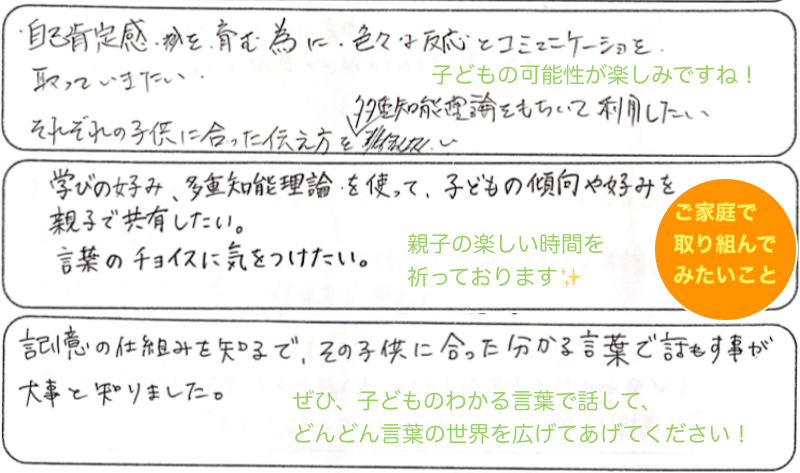 自己肯定感・力を育む為に・色々な反応とコミュニケーションを
取っていきたい・
子どもの可能性が楽しみですね！
多重知能理論をもちいて利用したい
それぞれの子供に合った伝え方を
学びの好み、多重知能理論を使って、子どもの傾向や好みを
親子で共有したい。
言葉のチョイスに気をつけたい。
親子の楽しい時間を
祈っております✨
ご家庭で
取り組んで
みたいこと
記憶の仕組みを知るで、その子供に合った分かる言葉で話もす事が
大事と知りました。
ぜひ、子どものわかる言葉で話して、
どんどん言葉の世界を広げてあげてください！